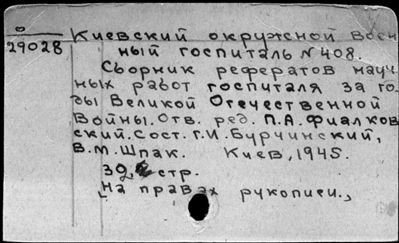 Киевский окружной воен
29028 ный госпиталь N 408.
Сборник рефератов науч
ных работ госпиталя за го-
ды Великой Отечественной
Войны. Отв. ред. П.А. Фиалков
ский. Сост. Г.И. Бурчинский,
В.М. Шпак. Киев, 1945.
стр.
На правах рукописи.